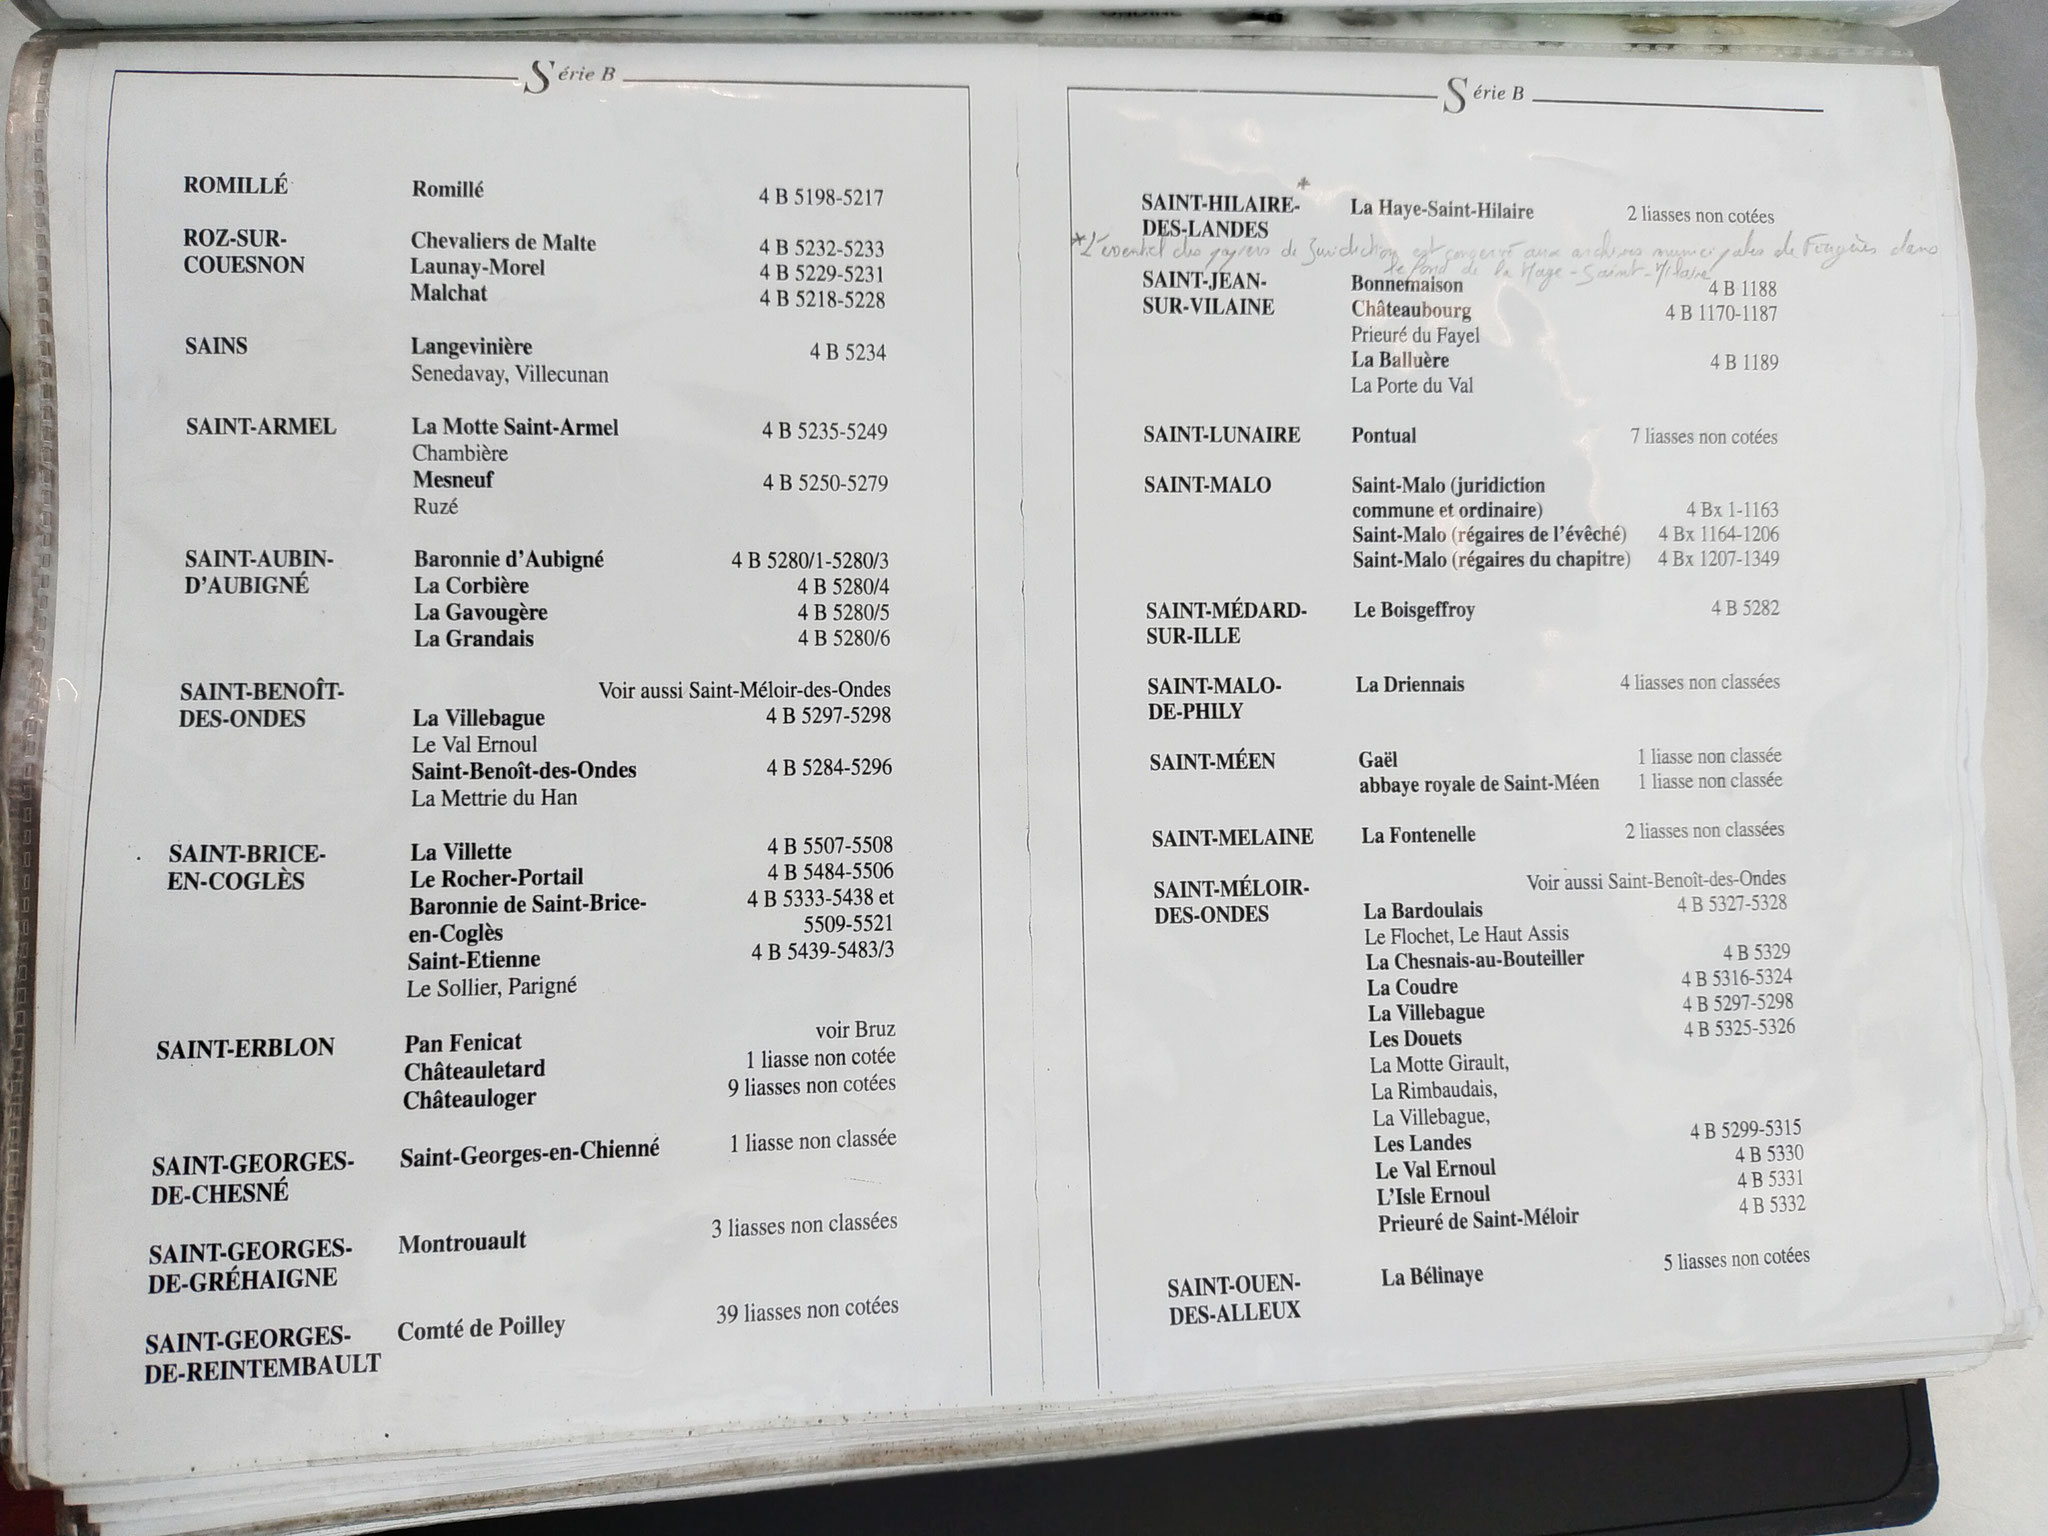 Série B
ROMILLÉ Romillé 4 B 5198-5217
ROZ-SUR- Chevaliers de Malte 4 B 5232-5233
COUESNON Launay-Morel 4 B 5229-5231
Malchat 4 B 5218-5228
SAINS Langevinière 4 B 5234
Senedavay, Villecunan
SAINT-ARMEL La Motte Saint-Armel 4 B 5235-5249
Chambière
Mesneuf 4 B 5250-5279
Ruzé
SAINT-AUBIN- Baronnie d'Aubigné 4 B 5280/1-5280/3
D'AUBIGNÉ La Corbière 4 B 5280/4
La Gavougère 4 B 5280/5
La Grandais 4 B 5280/6
SAINT-BENOÎT- Voir aussi Saint-Méloir-des-Ondes
DES-ONDES La Villebague 4 B 5297-5298
Le Val Ernoul
Saint-Benoît-des-Ondes 4 B 5284-5296
La Mettrie du Han
SAINT-BRICE- La Villette 4 B 5507-5508
EN-COGLÈS Le Rocher-Portail 4 B 5484-5506
Baronnie de Saint-Brice- 4 B 5333-5438 et
en-Coglès 5509-5521
Saint-Etienne 4 B 5439-5483/3
Le Sollier, Parigné
SAINT-ERBLON Pan Fenicat voir Bruz
Châteauletard 1 liasse non cotée
Châteauloger 9 liasses non cotées
SAINT-GEORGES- Saint-Georges-en-Chienné 1 liasse non classée
DE-CHESNÉ
SAINT-GEORGES- Montrouault 3 liasses non classées
DE-GRÉHAIGNE
SAINT-GEORGES- Comté de Poilley 39 liasses non cotées
DE-REINTEMBAULT
Série B
SAINT-HILAIRE- * La Haye-Saint-Hilaire 2 liasses non cotées
DES-LANDES
* L'essentiel des papiers de Juridiction est conservé aux archives municipales de Fougères dans
le fond de la Haye-Saint-Hilaire
SAINT-JEAN- Bonnemaison 4 B 1188
SUR-VILAINE Châteaubourg 4 B 1170-1187
Prieuré du Fayel
La Balluère 4 B 1189
La Porte du Val
SAINT-LUNAIRE Pontual 7 liasses non cotées
SAINT-MALO Saint-Malo (juridiction
commune et ordinaire) 4 Bx 1-1163
Saint-Malo (régaires de l'évêché) 4 Bx 1164-1206
Saint-Malo (régaires du chapitre) 4 Bx 1207-1349
SAINT-MÉDARD- Le Boisgeffroy 4 B 5282
SUR-ILLE
SAINT-MALO- La Driennais 4 liasses non classées
DE-PHILY
SAINT-MÉEN Gaël 1 liasse non classée
abbaye royale de Saint-Méen 1 liasse non classée
SAINT-MELAINE La Fontenelle 2 liasses non classées
SAINT-MÉLOIR- Voir aussi Saint-Benoît-des-Ondes
DES-ONDES La Bardoulais 4 B 5327-5328
Le Flochet, Le Haut Assis
La Chesnais-au-Bouteiller 4 B 5329
La Coudre 4 B 5316-5324
La Villebague 4 B 5297-5298
Les Douets 4 B 5325-5326
La Motte Girault,
La Rimbaudais,
La Villebague,
Les Landes 4 B 5299-5315
Le Val Ernoul 4 B 5330
L'Isle Ernoul 4 B 5331
Prieuré de Saint-Méloir 4 B 5332
SAINT-OUEN- La Bélinaye 5 liasses non cotées
DES-ALLEUX